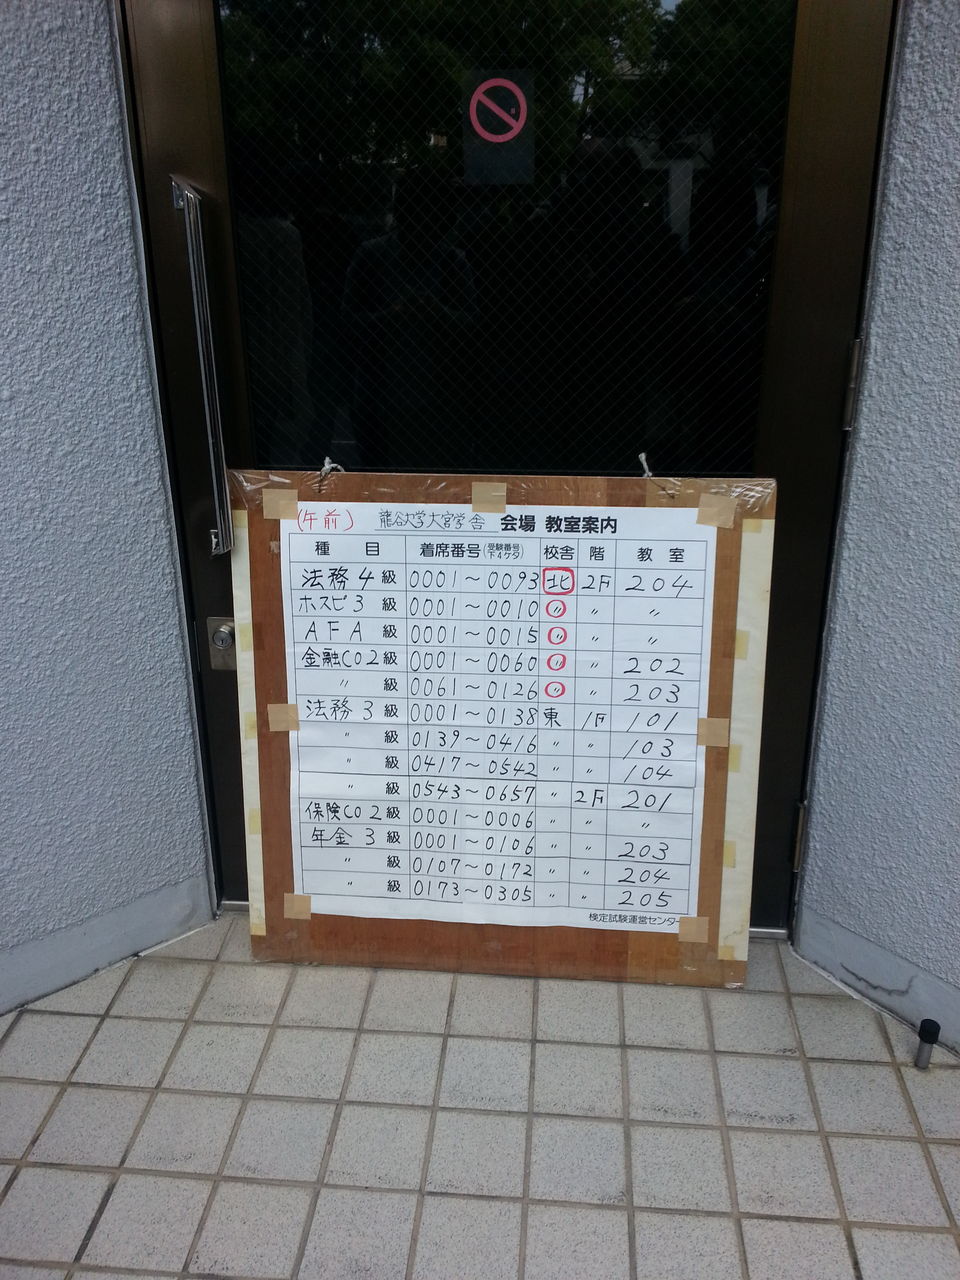 (午前) 龍谷大学大宮学舎 会場 教室案内
種 目 着席番号(受験番号下4ケタ) 校舎 階 教 室
法務4級 0001～0093 北 2F 204
ホスピ3級 0001～0010 〃 〃 〃
AFA級 0001～0015 〃 〃 〃
金融CO2級 0001～0060 〃 〃 202
〃 級 0061～0126 〃 〃 203
法務3級 0001～0138 東 1F 101
〃 級 0139～0416 〃 〃 103
〃 級 0417～0542 〃 〃 104
〃 級 0543～0657 〃 2F 201
保険CO2級 0001～0006 〃 〃 〃
年金3級 0001～0106 〃 〃 203
〃 級 0107～0172 〃 〃 204
〃 級 0173～0305 〃 〃 205
検定試験運営センター